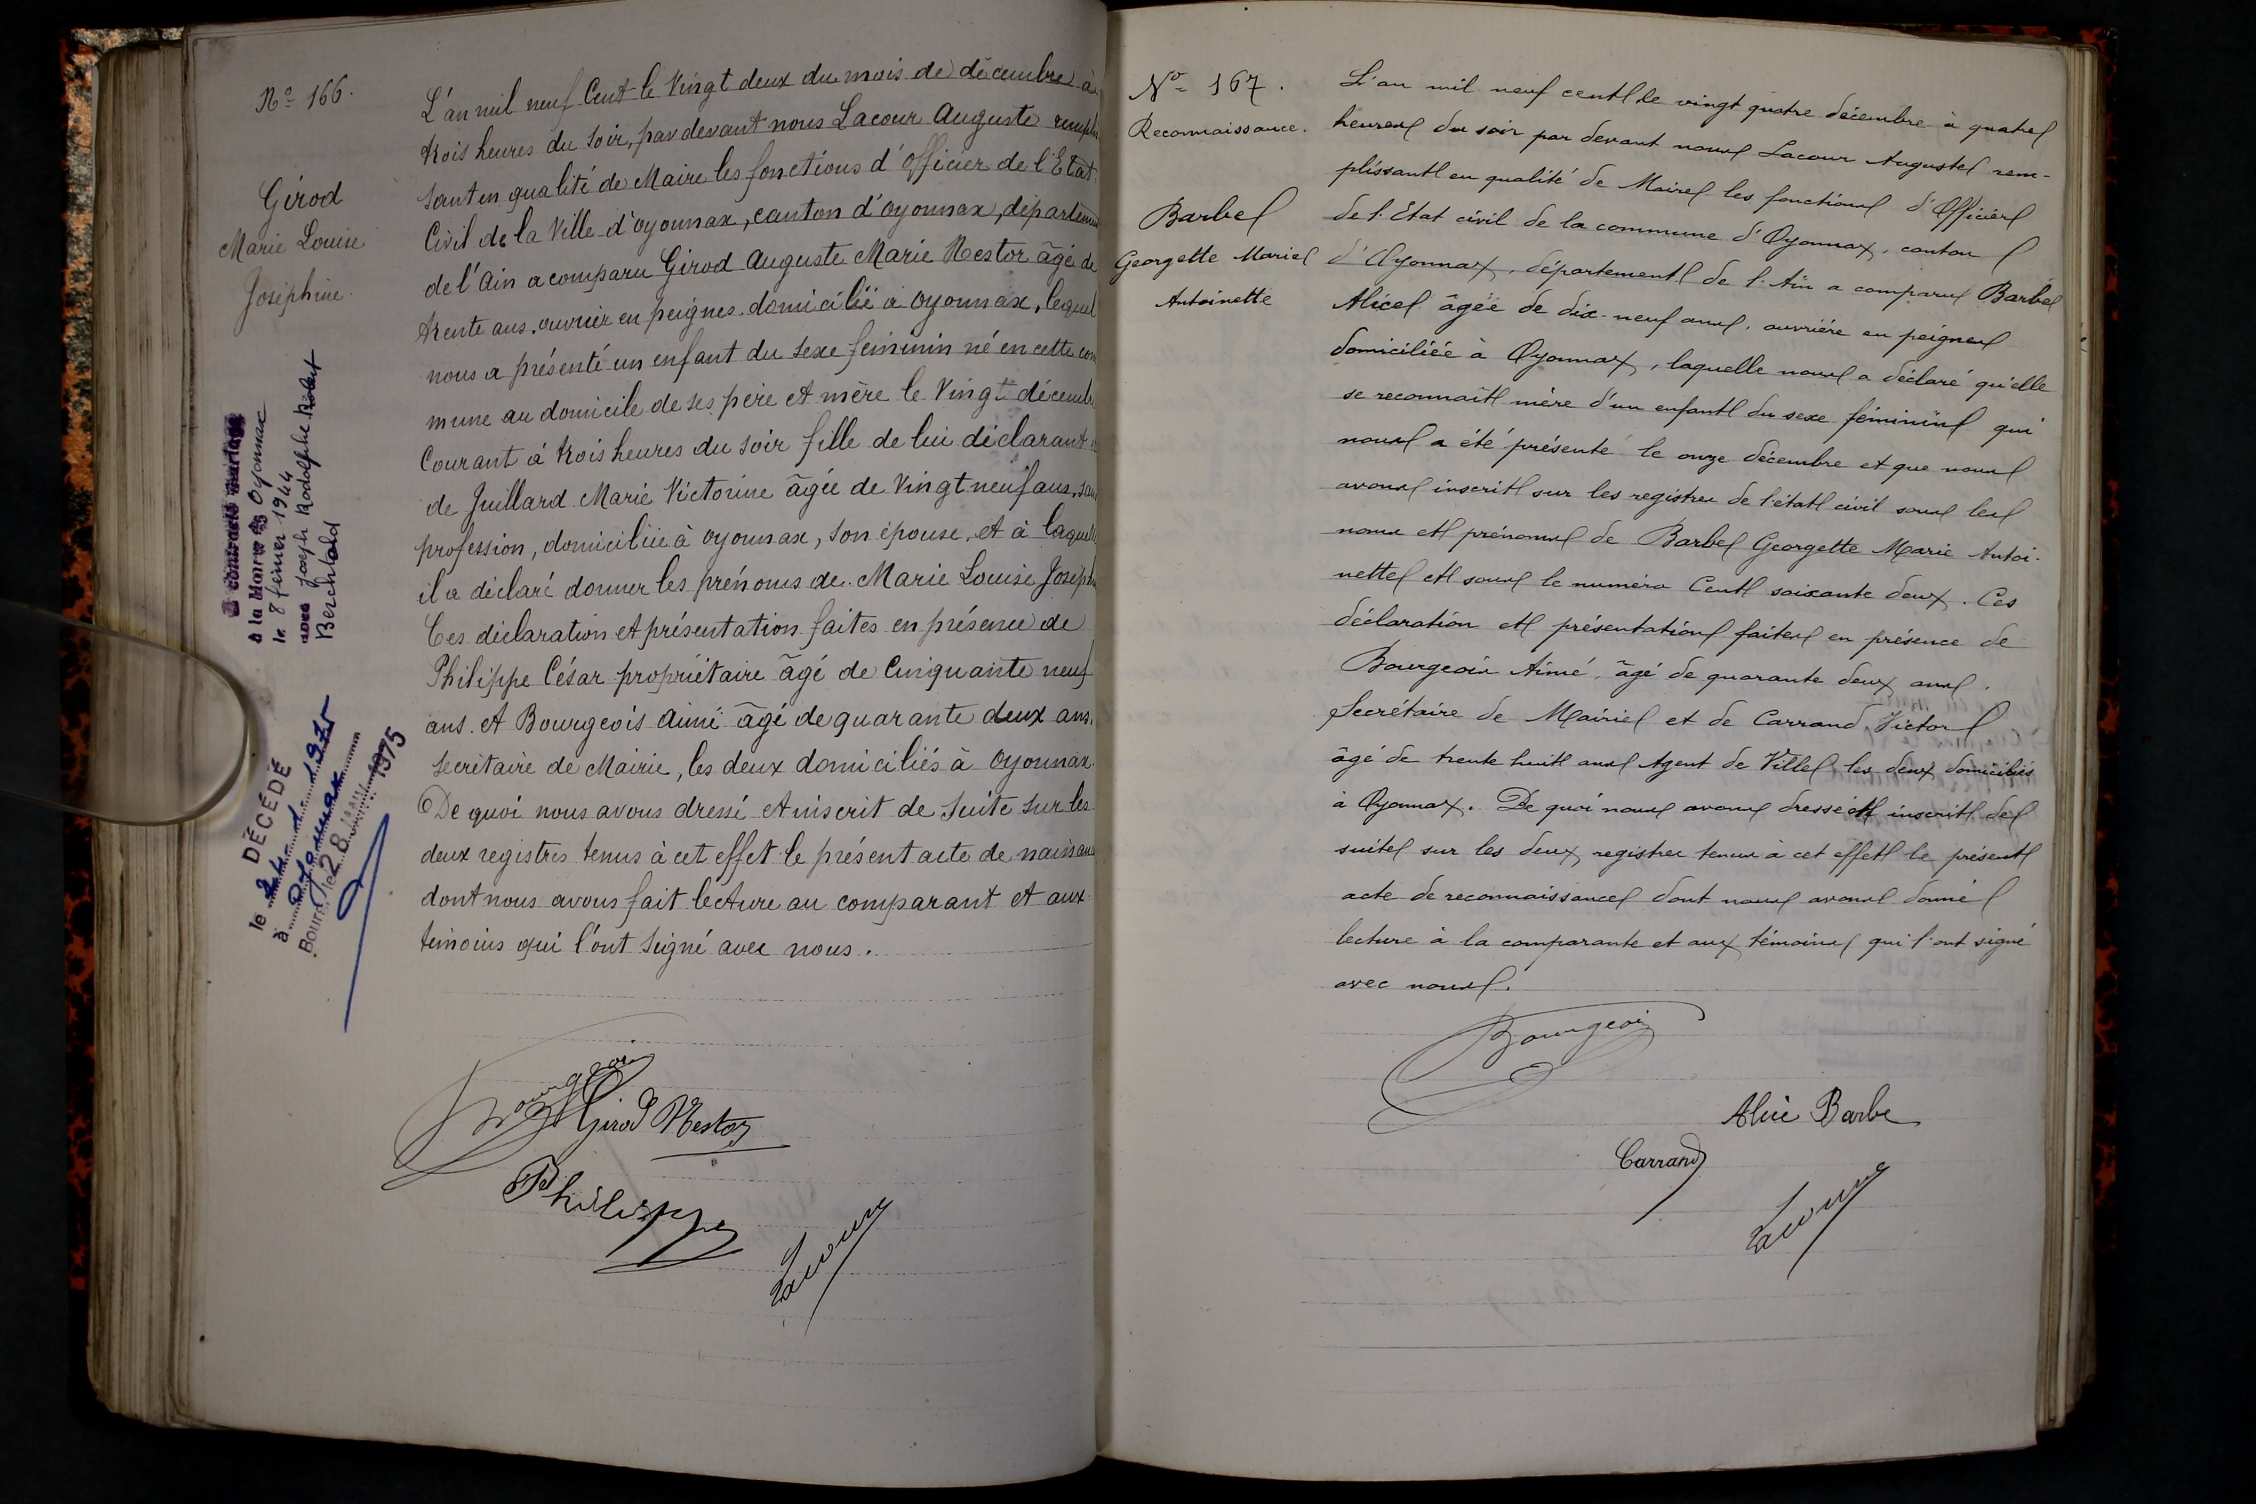 No 166.
Girod
Marie Louise
Joséphine.
A contracté mariage
à la Mairie de Oyonnax
le 8 février 1944
avec Joseph Rodolphe Robert
Berchtold
DÉCÉDÉ
le 24 1 1975
à Oyonnax
Bourg, le 28 JANV 1975
L'an mil neuf Cent le Vingt deux du mois de décembre à
trois heures du soir, par devant nous Lacour Auguste remplis
sant en qualité de Maire les fonctions d'Officier de l'Etat
Civil de la Ville d'Oyonnax, canton d'Oyonnax, département
de l'Ain a comparu Girod Auguste Marie Nestor âgé de
trente ans, ouvrier en peignes domicilié à Oyonnax, lequel
nous a présenté un enfant du sexe féminin né en cette com
mune au domicile de ses père et mère le Vingt décembre
Courant à trois heures du soir fille de lui déclarant et
de Juillard Marie Victorine âgée de Vingt neuf ans, sans
profession, domiciliée à Oyonnax, son épouse, et à laquelle
il a déclaré donner les prénoms de Marie Louise Joséphine
Ces déclaration et présentation faites en présence de
Philippe César propriétaire âgé de Cinquante neuf
ans et Bourgeois Aimé âgé de quarante deux ans.
Secrétaire de Mairie, les deux domiciliés à Oyonnax.
De quoi nous avons dressé et inscrit de suite sur les
deux registres tenus à cet effet le présent acte de naissance
dont nous avons fait lecture au comparant et aux
témoins qui l'ont signé avec nous.
Bourgeois
Girod Nestor
Philippe
Lacour
No 167.
Reconnaissance.
Barbe
Georgette Marie
Antoinette
L'an mil neuf cent le vingt quatre décembre à quatre
heures du soir par devant nous Lacour Auguste rem-
plissant en qualité de Maire les fonctions d'Officier
de l'Etat civil de la commune d'Oyonnax, canton
d'Oyonnax, département de l'Ain a comparu Barbe
Alice âgée de dix-neuf ans, ouvrière en peignes
domiciliée à Oyonnax, laquelle nous a déclaré qu'elle
se reconnaît mère d'un enfant du sexe féminin qui
nous a été présenté le onze décembre et que nous
avons inscrit sur les registres de l'état civil sous les
noms et prénoms de Barbe Georgette Marie Antoi-
nette et sous le numéro Cent soixante deux. Ces
déclaration et présentation faites en présence de
Bourgeois Aimé, âgé de quarante deux ans,
Secrétaire de Mairie et de Carrand Victor
âgé de trente huit ans Agent de Ville les deux domiciliés
à Oyonnax. De quoi nous avons dressé et inscrit de
suite sur les deux registres tenus à cet effet le présent
acte de reconnaissance dont nous avons donné
lecture à la comparante et aux témoins qui l'ont signé
avec nous.
Bourgeois
Alice Barbe
Carrand
Lacour